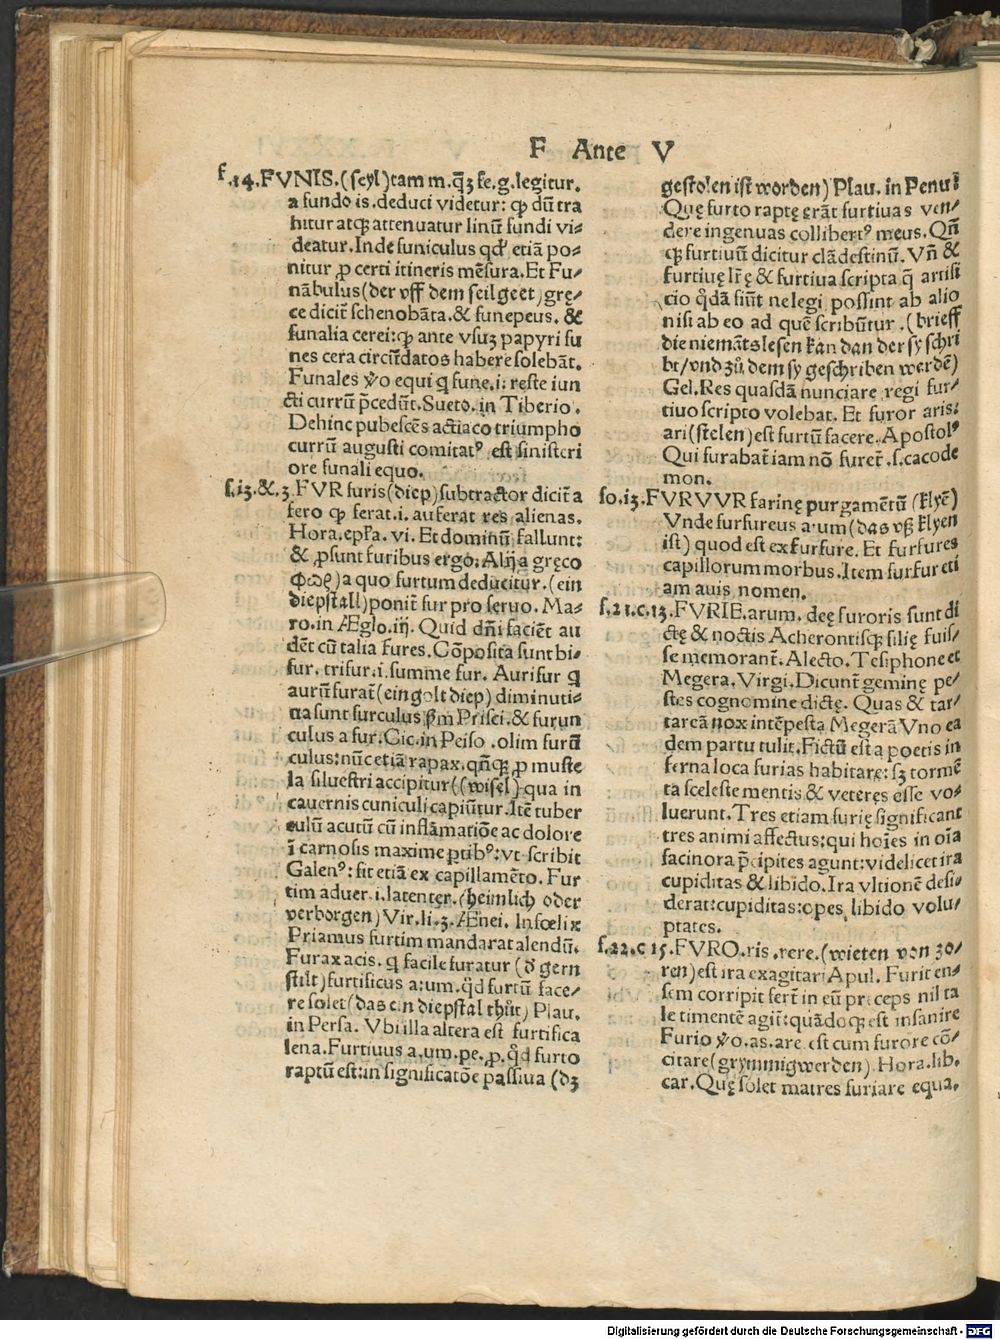 F Ante V
f.14.FVNIS.(seyl)tam m.q̃ꝫ fe.g.legitur.
a fundo is.deduci videtur: ꝙ dũ tra
hitur atqꝫ attenuatur linũ fundi vi⸗
deatur.Inde funiculus qd' etiã po⸗
nitur ꝓ certi itineris mẽsura.Et Fu/
nãbulus(der vff dem seil geet)grę/
ce dicit̃ schenobãta.& funepeus. &
funalia cerei:ꝙ ante vsuꝫ papyri fu
nes cera circũdatos habere solebãt.
Funales ꝟo equi q fune.i: reste iun
cti currũ p̃cedũt.Sueto.in Tiberio.
Dehinc pubescẽs actiaco triumpho
currũ augusti comitatꝰ est sinisteri
ore funali equo.
f.13.&.3.FVR furis(diep)subtractor dicit̃ a
fero ꝙ ferat.i.auferat res alienas.
Hora.epl̃a.vi.Et dominũ fallunt:
& ꝓsunt furibus ergo: Alij a gręco
φωρ)a quo furtum deducitur.(ein
diepstall)ponit̃ fur pro seruo.Ma⸗
ro.in Æglo.iij.Quid dñi faciẽt au
dẽt cũ talia fures.Cõposita sunt bi⸗
fur.trifur.i.summe fur.Aurifur q
aurũ furat̃(ein golt diep)diminuti⸗
ua sunt furculus ẜm Prisci.& furun
culus a fur.Cic.in Peiso.olim furũ
culus:nũc etiã rapax.qñqꝫ ꝓ muste
la siluestri accipitur((wisel)qua in
cauernis cuniculi capiũtur.Itẽ tuber
culũ acutũ cũ inflãmatiõe ac dolore
ĩ carnosis maxime ꝑtibꝰ:vt scribit
Galenꝰ:fit etiã ex capillamẽto.Fur
tim aduer.i.latenter.(heimlich oder
verborgen)Vir.li.3.Ænei. Infœlix
Priamus furtim mandarat alendũ.
Furax acis.q facile furatur (ď gern
stilt)furtificus a:um.q̊d furtũ face/
re solet(das ein diepstal thůt)Plau.
in Persa. Vbi illa altera est furtifica
lena.Furtiuus a.um.pe.ꝓ.q̊d furto
raptũ est:in significatõe passiua (dꝫ
gestolen ist worden)Plau.in Penul̃
Quę furto raptę erãt furtiuas ven/
dere ingenuas collibertꝰ meus.Qñ
qꝫ furtiuũ dicitur clãdestinũ.Vñ &
furtiuę lr̃ę & furtiua scripta q̃ artifi
cio q̊dã siũt ne legi possint ab alio
nisi ab eo ad quẽ scribũtur.(brieff
die niemãts lesen kan dan der sy schri
bt/vnd zů dem sy geschriben werdẽ)
Gel.Res quasdã nunciare regi fur/
tiuo scripto volebat. Et furor aris:
ari(stelen)est furtũ facere.Apostolꝰ
Qui furabat̃ iam nõ furet̃.s.cacode
mon.
fo.13.FVRVVR farinę purgamẽtũ (klyẽ)
Vnde furfureus a:um(das vß klyen
ist) quod est ex furfure. Et furfures
capillorum morbus.Item furfur eti
am auis nomen.
f.21.c.13.FVRIE.arum.deę furoris sunt di
ctę & noctis Acherontisqꝫ filię fuis/
se memorant̃.Alecto.Tesiphone et
Megera.Virgi.Dicunt̃ geminę pe/
stes cognomine dictę. Quas & tar/
tareã nox intẽpesta Megerã Vno ea
dem partu tulit.Fictũ est a poetis in
ferna loca furias habitare:sꝫ tormẽ
ta sceleste mentis & veteres esse vo⸗
luerunt.Tres etiam furię significant
tres animi affectus:qui hoĩes in oĩa
facinora p̃cipites agunt:videlicet ira
cupiditas & libido.Ira vltionẽ desi⸗
derat:cupiditas:opes, libido volu/
ptates.
f.22.c 15.FVRO.ris.rere.(wieten von zo/
ren)est ira exagitari Apul. Furit en⸗
sem corripit fert̃ in eũ preceps nil ta
le timentẽ agit̃:quãdoqꝫ est insanire
Furio ꝟo.as.are.est cum furore cõ/
citare(grymmig werden).Hora.lib.
car.Quę solet matres furiare equa.
Digitalisierung gefördert durch die Deutsche Forschungsgemeinschaft - DFG